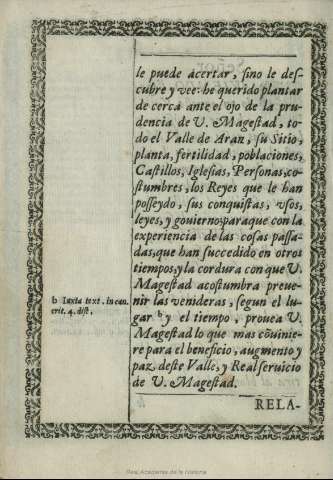 le puede acertar, sino le des-
cubre y vee: he querido plantar
de cerca ante el ojo de la pru-
dencia de V. Magestad, to-
do el Valle de Aran, su Sitio,
planta, fertilidad, poblaciones,
Castillos, Iglesias, Personas, co-
stumbres, los Reyes que le han
posseydo, sus conquistas, vsos,
leyes, y gouierno: paraque con la
experiencia de las cosas passa-
das, que han succedido en otros
tiempos, y la cordura con que V.
Magestad acostumbra preue-
nir las venideras, segun el lu-
gar b y el tiempo, prouea V.
Magestad lo que mas cōuinie-
re para el beneficio, augmento y
paz deste Valle, y Real seruicio
de V. Magestad.
b Iuxta text. in can.
erit. 4. dist.
RELA-
Real Academia de la Historia